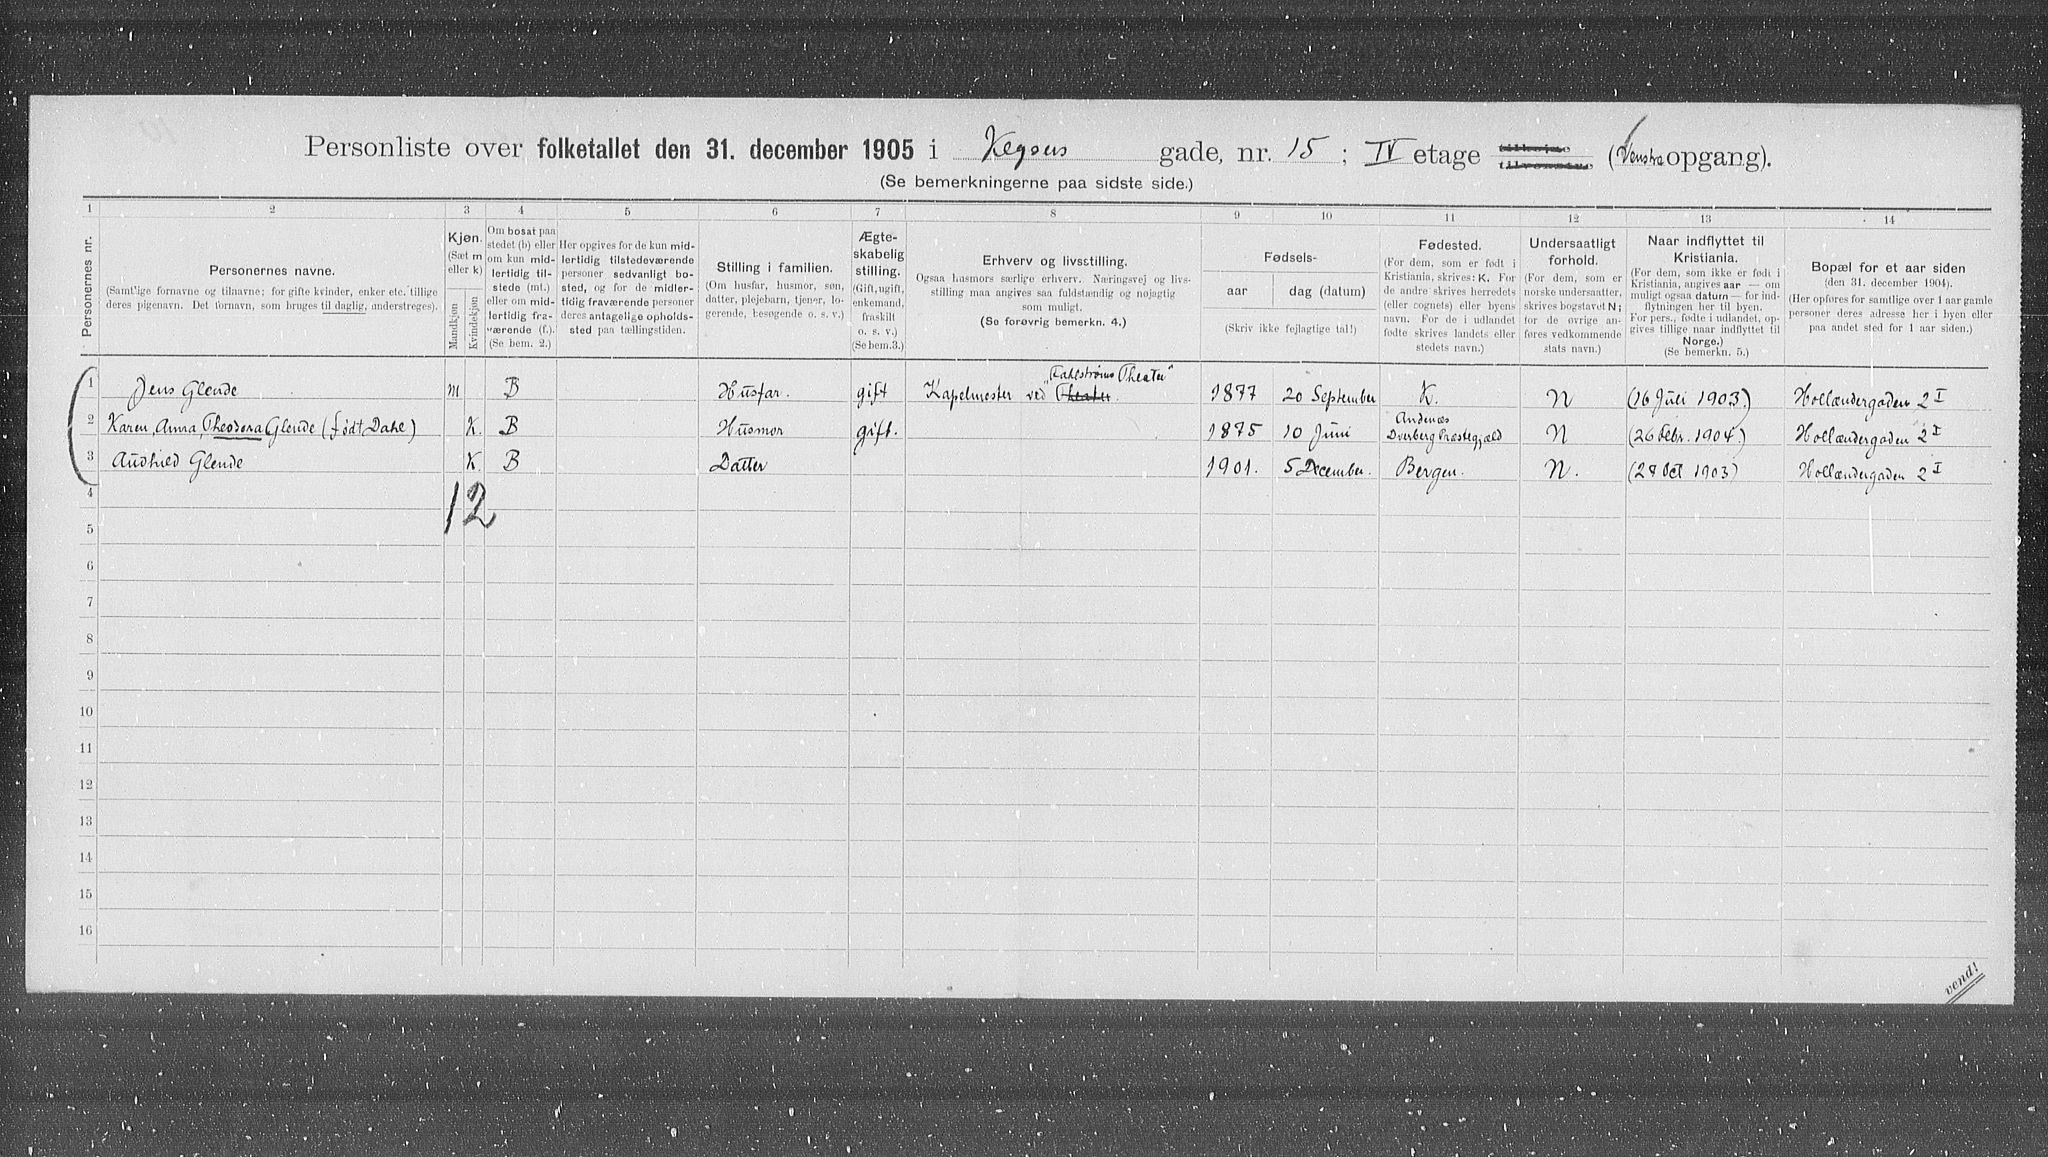 Personliste over folketallet den 31. december 1905 i Keysers gade, nr. 15 ; IV etage (Venstre opgang).
(Se bemerkningerne paa sidste side.)
1 2 3 4 5 6 7 8 9 10 11 12 13 14
Personernes nr.
Personernes navne.
(Samtlige fornavne og tilnavne; for gifte kvinder, enker etc. tillige
deres pigenavn. Det fornavn, som bruges til daglig, understreges).
Kjøn.
(Sæt m
eller k)
Mandkjøn
Kvindekjøn
Om bosat paa
stedet (b) eller
om kun mid-
lertidig til-
stede (mt.)
eller om mid-
lertidig fra-
værende (f.).
(Se bem. 2.)
Her opgives for de kun mid-
lertidig tilstedeværende
personer sedvanligt bo-
sted, og for de midler-
tidig fraværende personer
deres antagelige opholds-
sted paa tællingstiden.
Stilling i familien.
(Om husfar, husmor, søn,
datter, plejebarn, tjener, lo-
gerende, besøgende o. s. v.)
Ægte-
skabelig
stilling.
(Gift, ugift,
enkemand,
fraskilt
o. s. v.)
(Se bem.3.)
Erhverv og livsstilling.
Ogsaa hasmors særlige erhverv. Næringsvej og livs-
stilling maa angives saa fuldstændig og nøjagtig
som muligt.
(Se forøvrig bemerkn. 4.)
Fødsels-
aar
dag (datum)
(Skriv ikke fejlagtige tal!)
Fødested.
(For dem, som er født i
Kristiania, skrives: K. For
de andre skrives herredets
(eller cognets) eller byens
navn. For de i udlandet
fødte skrives landets eller
stedets navn.)
Undersaatligt
forhold.
(For dem, som er
norske undersaatter,
skrives bogstavet N;
for de øvrige an-
føres vedkommende
stats navn.)
Naar indflyttet til
Kristiania.
(For dem, som ikke er født i
Kristiania, angives aar — om
muligt ogsaa datum — for ind-
flytningen her til byen.
For pers., fødte i udlandet, op-
gives tillige naar indflyttet til
Norge.)
(Se bemerkn. 5.)
Bopæl for et aar siden
(den 31. december 1904).
(Her opføres for samtlige over 1 aar gamle
personer deres adresse her i byen eller
paa andet sted for 1 aar siden.)
1 Jens Glende m B Husfar. gift Kapelmester ved Theater "Fahlstrøms Theater" 1877 20 September K. N (16 Juli 1903.) Hollændergaden 2 I
2 Karen, Anna, Theodora Glende (født Dahl) K. B Husmor gift. 1875 10 Juni Andenæs Dverberg Præstegjæld N (26 Febr. 1904.) Hollændergaden 2 I
3 Audhild Glende K. B Datter 1901. 5 December. Bergen. N. (28 Oct 1903) Hollændergaden 2 I
12
4
5
6
7
8
9
10
11
12
13
14
15
16
vend!